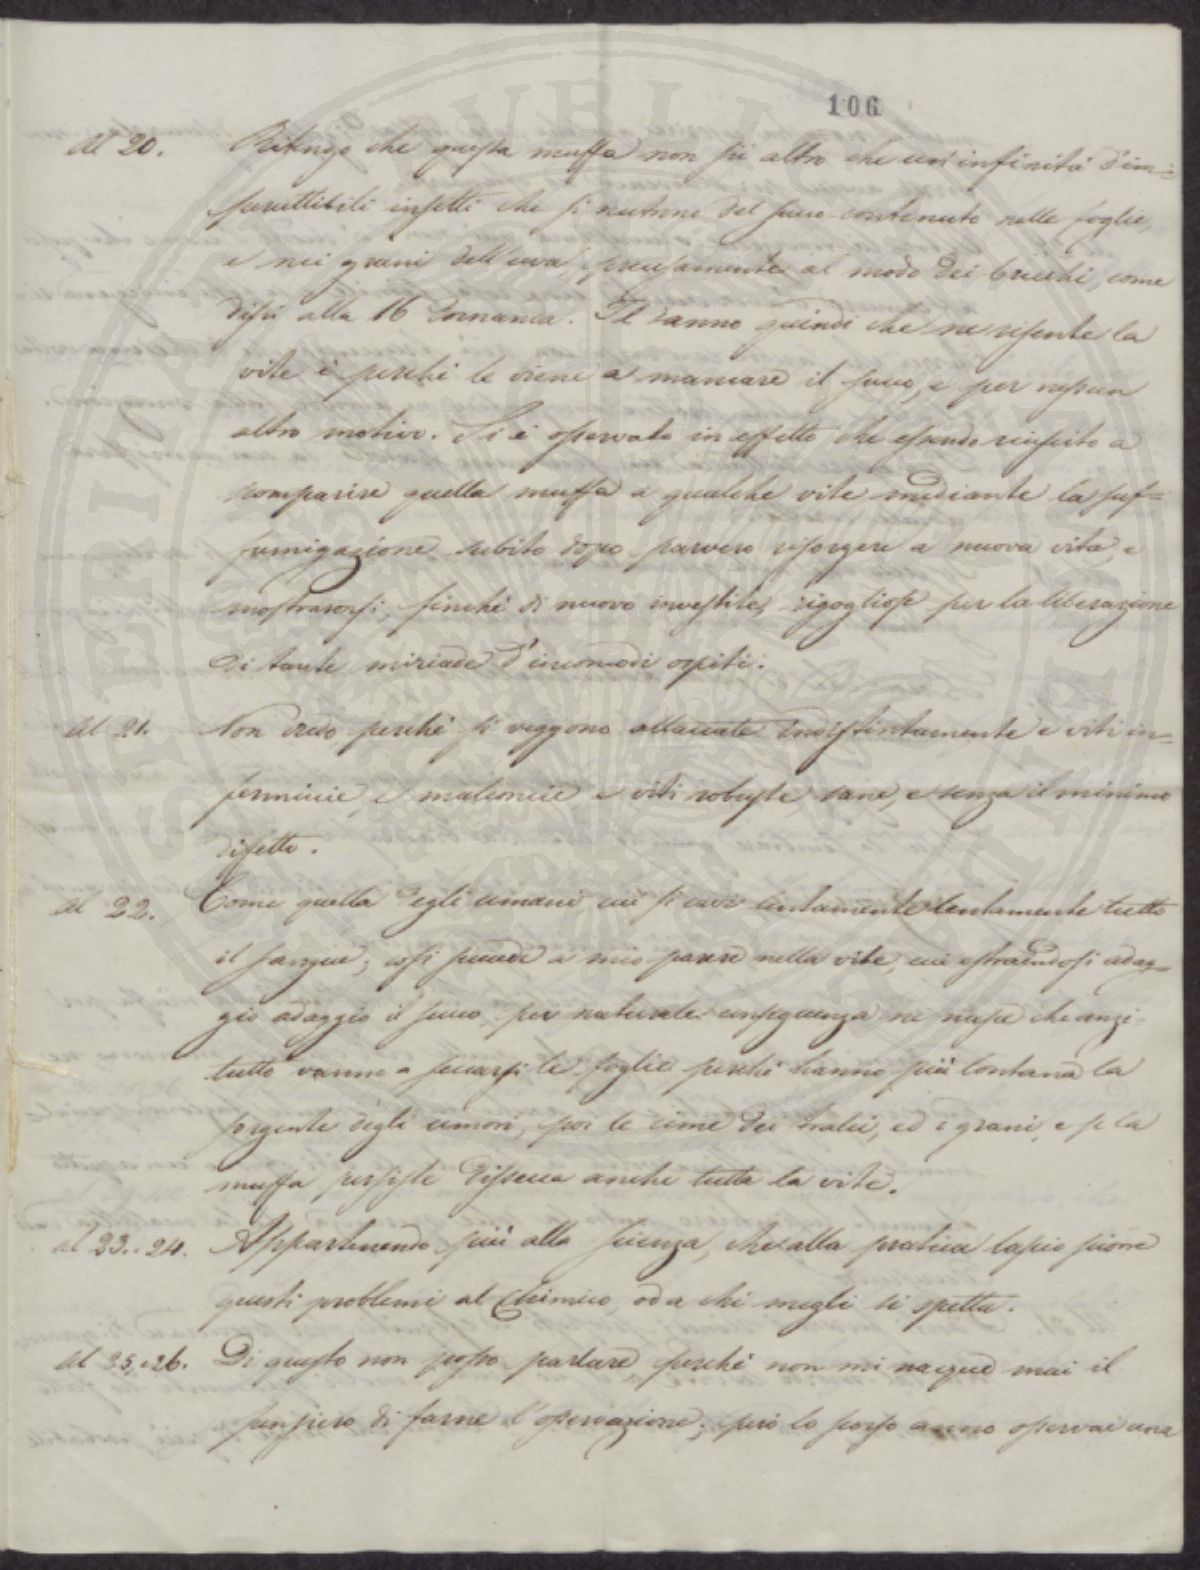 106
Al 20. Ritengo che questa muffa non sii altro che un'infinità d'im=
percettibili insetti che si nutrono del succo contenuto nelle foglie,
e nei grani dell'uva, precisamente al modo dei bruchi, come
dissi alla 16 domanda. Il danno quindi che ne risente la
vite è perchè le viene a mancare il succo, e per nessun
altro motivo. Si è osservato in effetto che essendo riuscito a
scomparire quella muffa a qualche vite mediante la suf=
fumigazione subito dopo parvero risorgere a nuova vita, e
mostraronsi, finchè di nuovo investite, rigogliose per la liberazione
di tante miriade d'incomodi ospiti.
Al 21. Non credo, perchè si veggono attaccate indistintamente e viti in=
fermiccie, e malconcie e viti robuste, sane, e senza il minimo
difetto.
al 22. Come quella degli umani cui si cavi lentamente lentamente tutto
il sangue; così succede a mio parere nella vite, cui estraendosi adag=
gio adaggio il succo, per naturale conseguenza ne nasce che anzi-
tutto vanno a seccarsi le foglie perchè hanno più lontana la
sorgente degli umori, poi le cime dei tralci, ed i grani, e se la
muffa persiste dissecca anche tutta la vite.
al 23. 24. Appartenendo più alla scienza, che alla pratica lascio sciorre
questi problemi al Chimico, od a chi meglio si spetta.
Al 25, e 26. Di questo non posso parlare, perchè non mi nacque mai il
pensiero di farne l'osservazione; però lo scorso anno osservai una